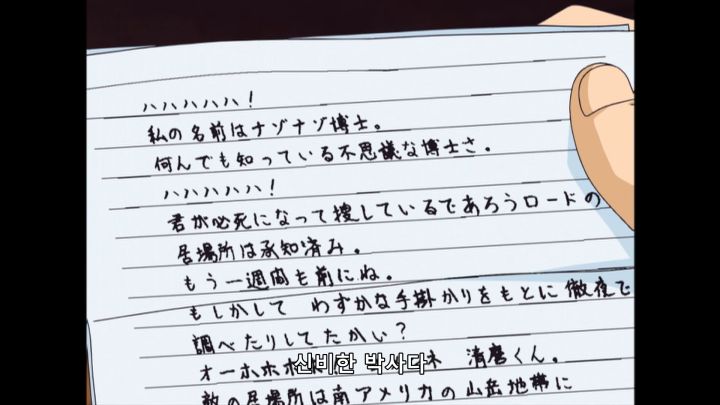 ハハハハハ！
私の名前はナゾナゾ博士。
何んでも知っている不思議な博士さ。
ハハハハハ！
君が必死になって捜しているであろうロードの
居場所は承知済み。
もう一週間も前にね。
もしかして わずかな手掛かりをもとに徹夜で
調べたりしてたかい？
オーホホホ ネ 清麿くん。
신비한 박사다
敵の居場所は南アメリカの山岳地帯に